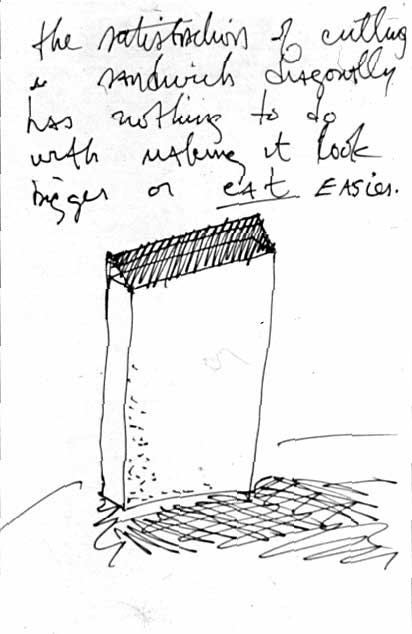 the satisfaction of cutting
a sandwich diagonally
has nothing to do
with making it look
bigger or eat EASIER.